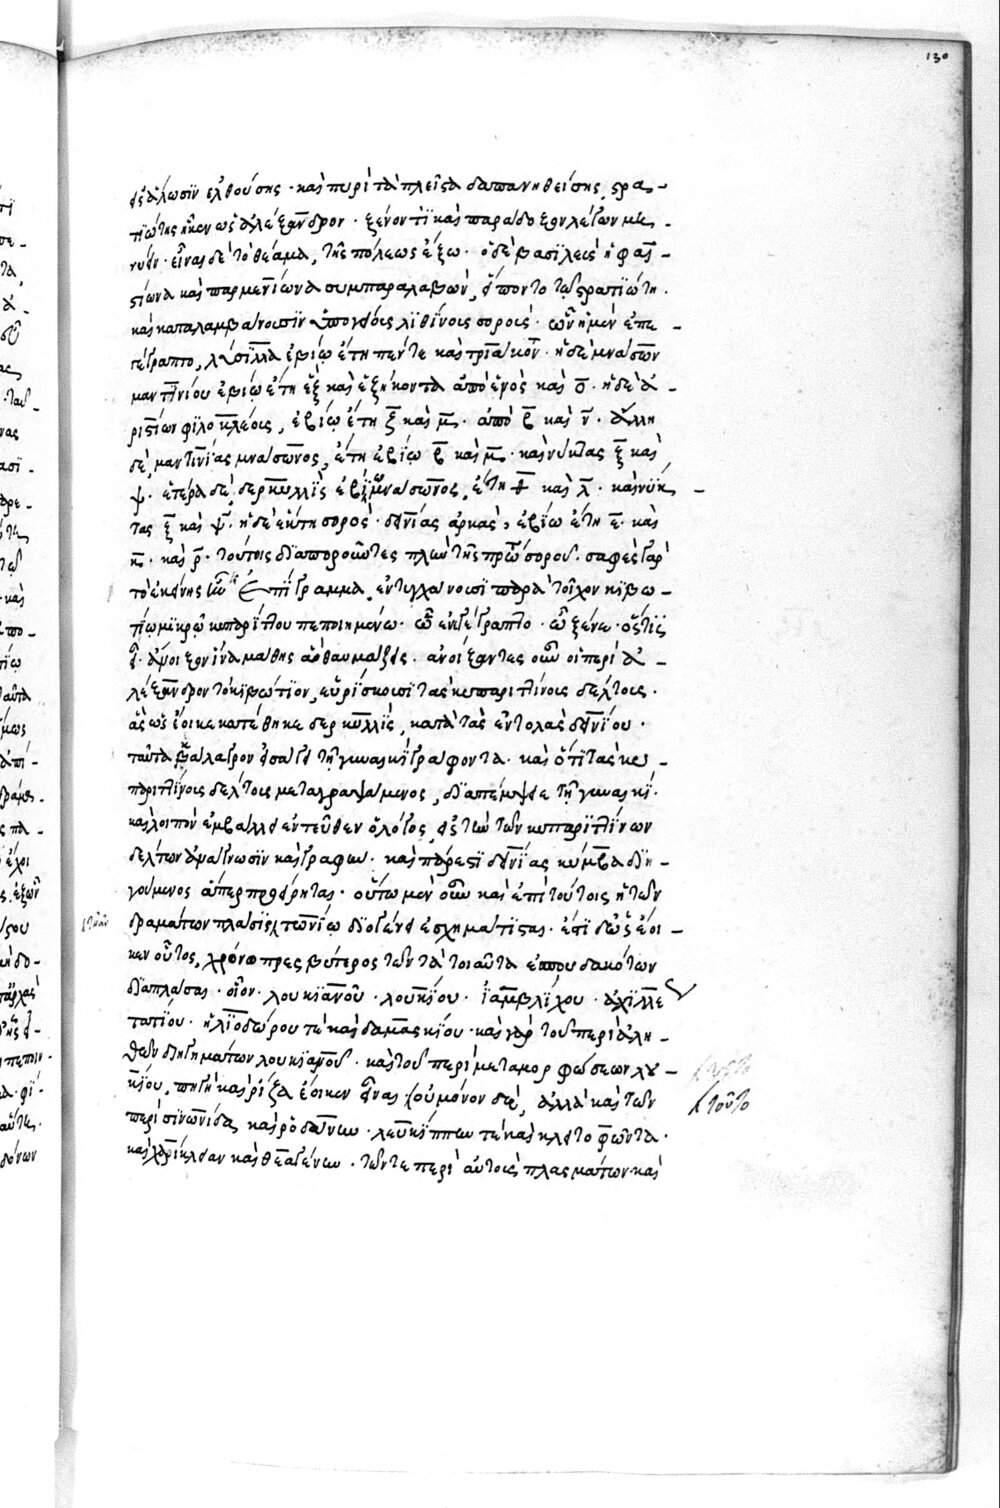 130
εἰς ἅλωσιν ἐλθούσης· καὶ πυρὶ τὰ πλεῖστα δαπανηθείσης, στρα-
τιώτης ἧκεν ὡς ἀλέξανδρον· ξένον τι καὶ παράδοξον λέγων μη-
νύειν· εἶναι δὲ τὸ θέαμα, τῆς πόλεως ἔξω· ὁ δὲ βασιλεὺς ἡφαι-
στίωνα καὶ παρμενίωνα συμπαραλαβών, εἵποντο τῶ στρατιώτη·
καὶ καταλαμβάνουσιν ὑπογείους λιθίνους σορούς· ὧν ἡ μὲν ἐπε-
γέγραπτο, λύσιλλα ἐβίω ἔτη πέντε καὶ τριάκοντα· ἡ δὲ μνάσων
μαντινίου ἐβίω ἔτη ἓξ καὶ ἑξήκοντα ἀπὸ ἑνὸς καὶ ο· ἡ δὲ ἀ-
ριστίων φιλοκλέους, ἐβίω ἔτη ζ καὶ μ· ἀπὸ β καὶ ν· ἄλλη
δὲ, μαντινίας μνάσωνος, ἔτη ἐβίω β καὶ μ· καὶ νύκτας ξ καὶ
ψ· ἑτέρα δὲ, δερκυλλὶς ἐβίω μνάσωνος, ἔτη θ καὶ λ· καὶ νύκ-
τας ξ καὶ ψ· ἡ δὲ ἕκτη σορὸς· δεινίας ἀρκὰς, ἐβίω ἔτη ε· καὶ
κ· καὶ ρ· τούτοις διαποροῦντες πλὴν τῆς πρώτης σοροῦ· σαφὲς γὰρ
τὸ ἐκείνης ἦν ἐπίγραμμα, ἐντυγχάνουσι παρὰ τοῖχον κιβω-
τίω μικρῶ κυπαρίττου πεποιημένω· ὧ ἐνεγέγραπτο· ὦ ξένε· ὅστις
εἶ· ἄνοιξον ἵνα μάθης ἃ θαυμάζεις· ἀνοίξαντες οὖν οἱ περὶ ἀ-
λέξανδρον τὸ κιβώτιον, εὑρίσκουσι τὰς κυπαριττίνους δέλτους·
ἃς ὡς ἔοικε κατέθηκε δερκυλλὶς, κατὰ τὰς ἐντολὰς δεινίου·
ταῦτα βάλαγρον εἰσάγει τῆ γυναικὶ γράφοντα· καὶ ὅτι τὰς κυ-
παριττίνους δέλτους μεταγραψάμενος, διαπέμψειε τῆ γυναικί·
καὶ λοιπὸν ἐμβάλλει ἐντεῦθεν ὁ λόγος, εἰς τὴν τῶν κυπαριττίνων
δέλτων ἀνάγνωσιν καὶ γραφήν· καὶ πάρεστι δεινίας κύμβα διη-
γούμενος ἅπερ προείρηται· οὕτω μὲν οὖν καὶ ἐπὶ τούτοις ἡ τῶν
δραμάτων πλάσις ἀντωνίω διογένει ἐσχημάτισται· ἔστι δ' ὡς ἔοι-
κεν οὗτος, χρόνω πρεσβύτερος τῶν τὰ τοιαῦτα ἐσπουδακότων
διαπλάσαι· οἷον· λουκιανοῦ· λουκίου· ἰαμβλίχου· ἀχιλλέ
τατίου· ἡλιοδώρου τε καὶ δαμασκίου· καὶ γὰρ τοῦ περὶ ἀλη-
θῶν διηγημάτων λουκιανοῦ· καὶ τοῦ περὶ μεταμορφώσεων λου-
κίου, πηγὴ καὶ ῥίζα ἔοικεν εἶναι τοῦτο οὐ μόνον δὲ, ἀλλὰ καὶ τῶν
περὶ σινωνίδα καὶ ῥοδάνην· λευκίππην τε καὶ κλειτοφῶντα·
καὶ χαρίκλειαν καὶ θεαγένην· τῶν τε περὶ αὐτοὺς πλασμάτων καὶ